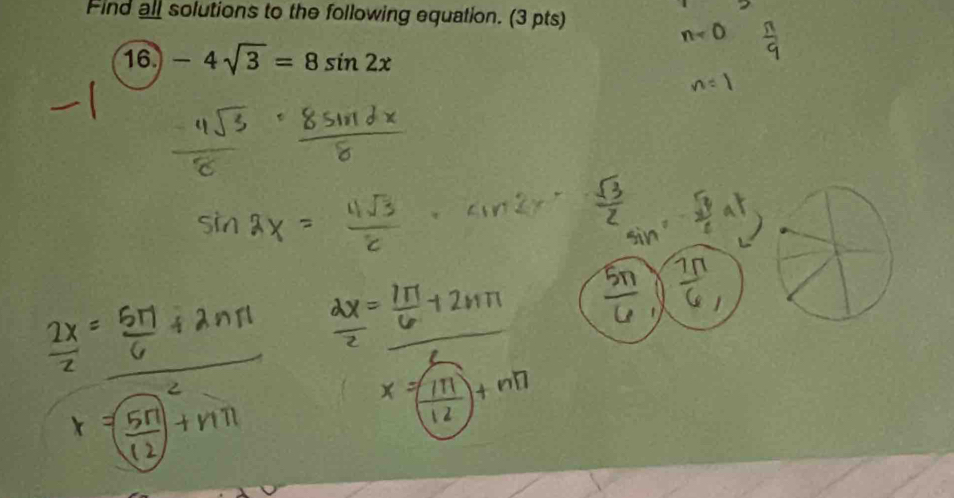 Find all solutions to the following equation. (3 pts)
n=0 π/9
n=1
16. - 4√3 = 8 sin 2x
-1
-4√3/8 = 8 sin 2x/8
sin 2x = 4√3/8 = sin 2x = -√3/2
sin = -√3/2 at
5π/6, 7π/6,
2x/2 = 5π/6 + 2nπ/2
2x/2 = 7π/6 + 2nπ/2
x = 5π/12 + nπ
x = 7π/12 + nπ